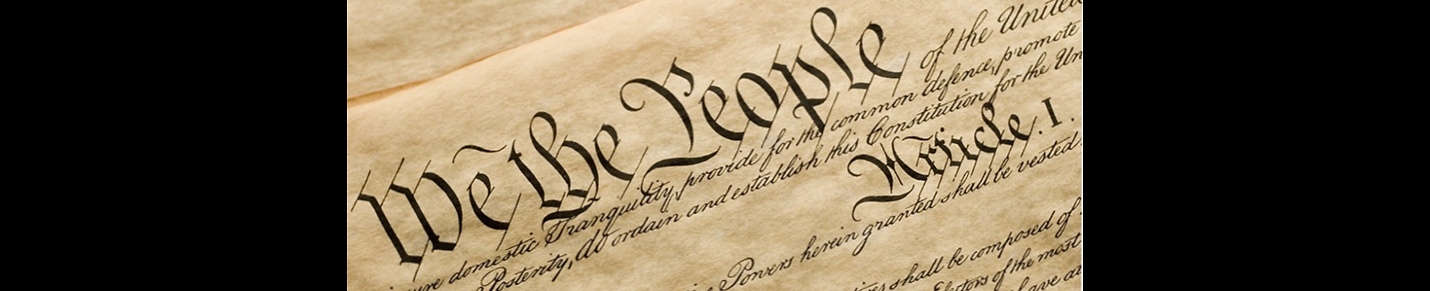 We the People of the United
ure domestic Tranquility, provide for the common defence, promote
Posterity, do ordain and establish this Constitution for the Un
Article. I.
Powers herein granted shall be vested
shall be composed of
Electors of the most
have at